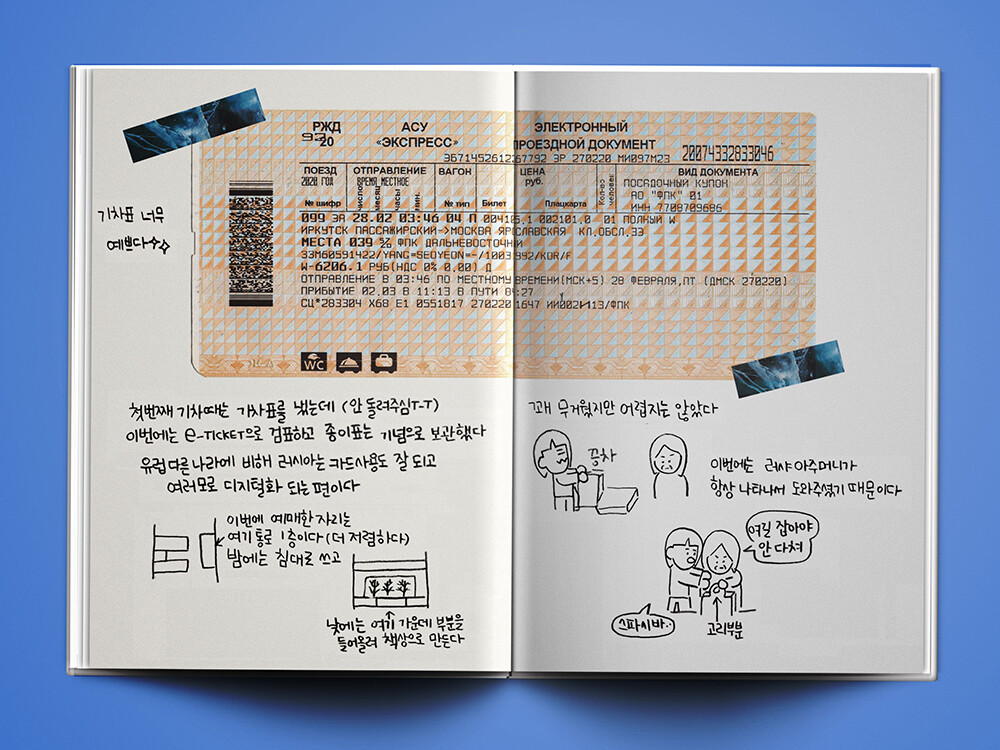 РЖД
АСУ
ЭЛЕКТРОННЫЙ
20
«ЭКСПРЕСС»
ПРОЕЗДНОЙ ДОКУМЕНТ
ЭБ71452612267792 ЭР 270220 МИ097М23 20074332833046
ПОЕЗД ОТПРАВЛЕНИЕ ВАГОН ЦЕНА ВИД ДОКУМЕНТА
2020 ГОД ВРЕМЯ МЕСТНОЕ руб. ПОСАДОЧНЫЙ КУПОН
АО "ФПК" 01
№ шифр число месяц часы мин. № тип Билет Плацкарта Кол-во человек ИНН 7708709686
099 ЭА 28.02 03:46 04 П 002101.0 01 ПОЛНЫЙ W
ИРКУТСК ПАССАЖИРСКИЙ->МОСКВА ЯРОСЛАВСКАЯ КЛ.ОБСЛ.3Э
МЕСТА 039 ФПК ДАЛЬНЕВОСТОЧНЫЙ
ЗЗМ60591422/YANG=SEOYEON=-/1003 992/KOR/F
W-6206.1 РУБ(НДС 0% 0.00) Д
ОТПРАВЛЕНИЕ В 03:46 ПО МЕСТНОМУ ВРЕМЕНИ(МСК+5) 28 ФЕВРАЛЯ,ПТ (ДМСК 270220)
ПРИБЫТИЕ 02.03 В 11:13 В ПУТИ 84:27
СЦ*283304 X68 E1 0551817 270220 1647
WC
기차표 너무
예쁘다수수
첫번째 기차때는 기차표를 냈는데 (안 돌려주심T-T)
이번에는 e-TICKET으로 검표하고 종이표는 기념으로 보관했다
유럽 다른 나라에 비해 러시아는 카드사용도 잘 되고
여러모로 디지털화 되는 편이다
이번에 예매한 자리는
여기 통로 1층이다 (더 저렴하다)
밤에는 침대로 쓰고
낮에는 여기 가운데 부분을
들어올려 책상으로 만든다
꽤 무거웠지만 어렵지는 않았다
끙차
이번에는 러샤 아주머니가
항상 나타나서 도와주셨기 때문이다
여길 잡아야
안 다쳐
스파시바..
고리부분